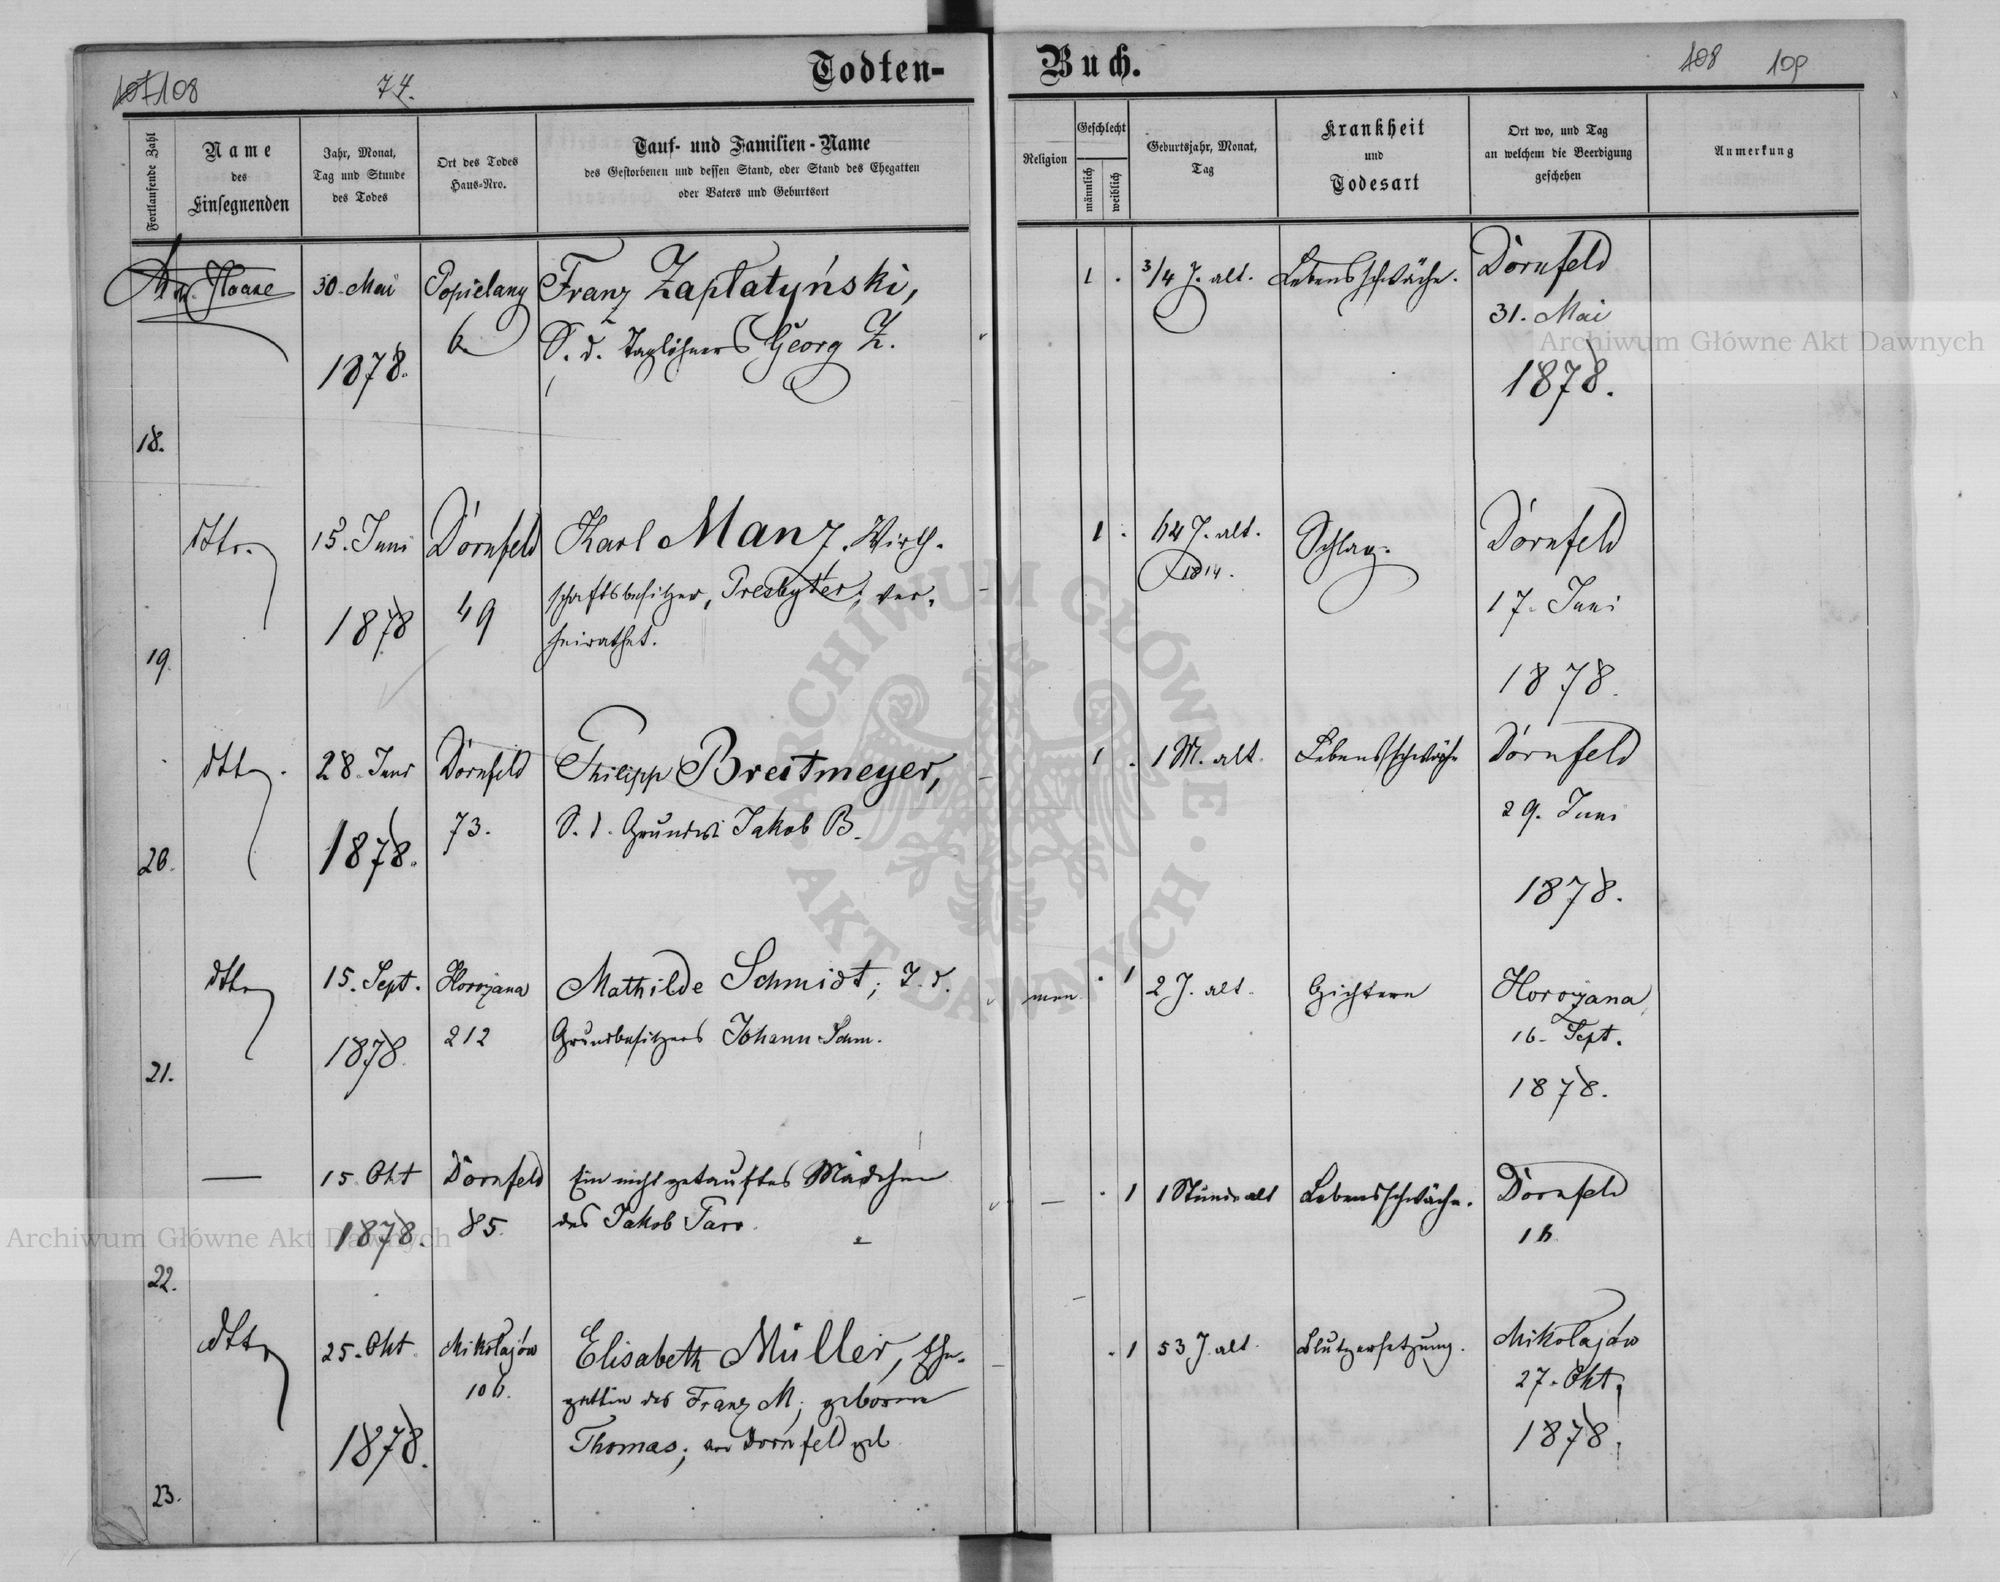 Todten-Buch.
107 108
74.
108 109
Fortlaufende Zahl
Name
des
Einsegnenden
Jahr, Monat,
Tag und Stunde
des Todes
Ort des Todes
Haus-Nro.
Tauf- und Familien-Name
des Gestorbenen und dessen Stand, oder Stand des Ehegatten
oder Vaters und Geburtsort
Religion
Geschlecht
männlich
weiblich
Geburtsjahr, Monat,
Tag
Krankheit
und
Todesart
Ort wo, und Tag
an welchem die Beerdigung
geschehen
Anmerkung
18.
Haase
30. Mai
1878.
Popielany
6.
Franz Zaplatyński,
S. d. Taglöhners Georg Z.
1 .
3/4 J. alt.
Lebensschwäche.
Dornfeld
31. Mai
1878.
19.
dtto.
15. Juni
1878
Dornfeld
49
Karl Manz, Wirth-
schaftsbesitzer, Presbyter, ver-
heirathet.
1 .
64 J. alt.
1814.
Schlag.
Dornfeld
17. Juni
1878.
20.
dtto.
28. Juni
1878.
Dornfeld
73.
Philipp Breitmeyer,
S. d. Grundwi Jakob B.
1 .
1 M. alt.
Lebensschwäche
Dornfeld
29. Juni
1878.
21.
dtto
15. Sept.
1878.
Horożana
212
Mathilde Schmidt, T. d.
Grundbesitzers Johann Schm.
men.
. 1
2 J. alt.
Gichtern
Horożana,
16. Sept.
1878.
22.
—
15. Okt
1878.
Dornfeld
85.
Ein nicht getauftes Mädchen
des Jakob Faro.
—
. 1
1 Stunde alt
Lebensschwäche.
Dornfeld
16
23.
dtto
25. Okt.
1878.
Mikołajów
106.
Elisabeth Müller, Ehe-
gattin des Franz M., geborene
Thomas, Dornfeld geb
. 1
53 J. alt.
Blutzersetzung.
Mikołajów
27. Okt.
1878.
Archiwum Główne Akt Dawnych
Archiwum Główne Akt Dawnych
ARCHIWUM GŁÓWNE · AKT DAWNYCH ·